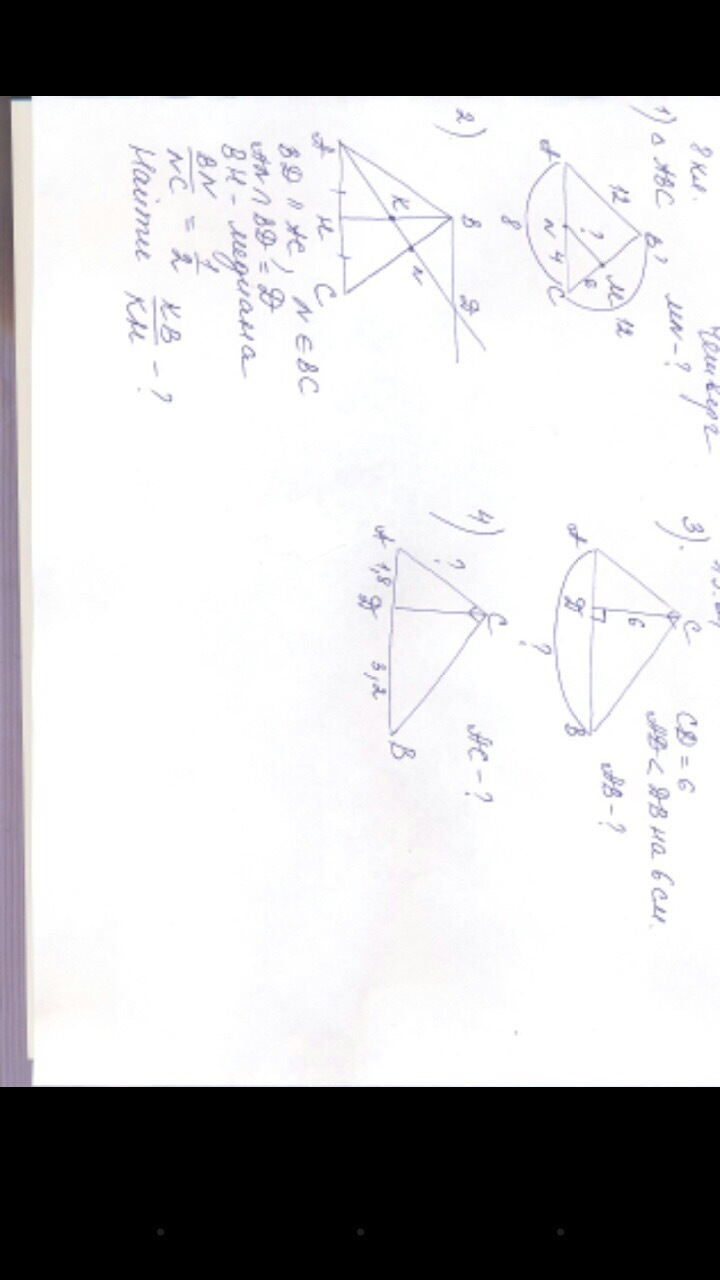 8 кл.
1) △ ABC MN - ?
B
12
M
12
?
6
A
N
4
C
8
2)
B
D
K
N
A
H
C
BD ∥ AC, N ∈ BC
AN ∩ BD = D
BH - медиана
BN/NC = 1/2
Найти KB/KH - ?
3).
C
6
A
D
B
?
CD = 6
AD < DB на 6 см.
AB - ?
4)
C
?
A
1,8
D
3,2
B
AC - ?